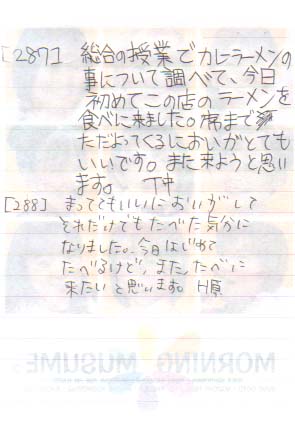 [287] 総合の授業でカレーラーメンの
事について調べて、今日
初めてこの店のラーメンを
食べに来ました。席まで
ただよってくるにおいがとても
いいです。また来ようと思い
ます。 T中
[288] まっててもいいにおいがして
それだけでもたべた気分に
なりました。今日はじめて
たべるけど、また、たべに
来たいと思います。 H願
MORNING MUSUME